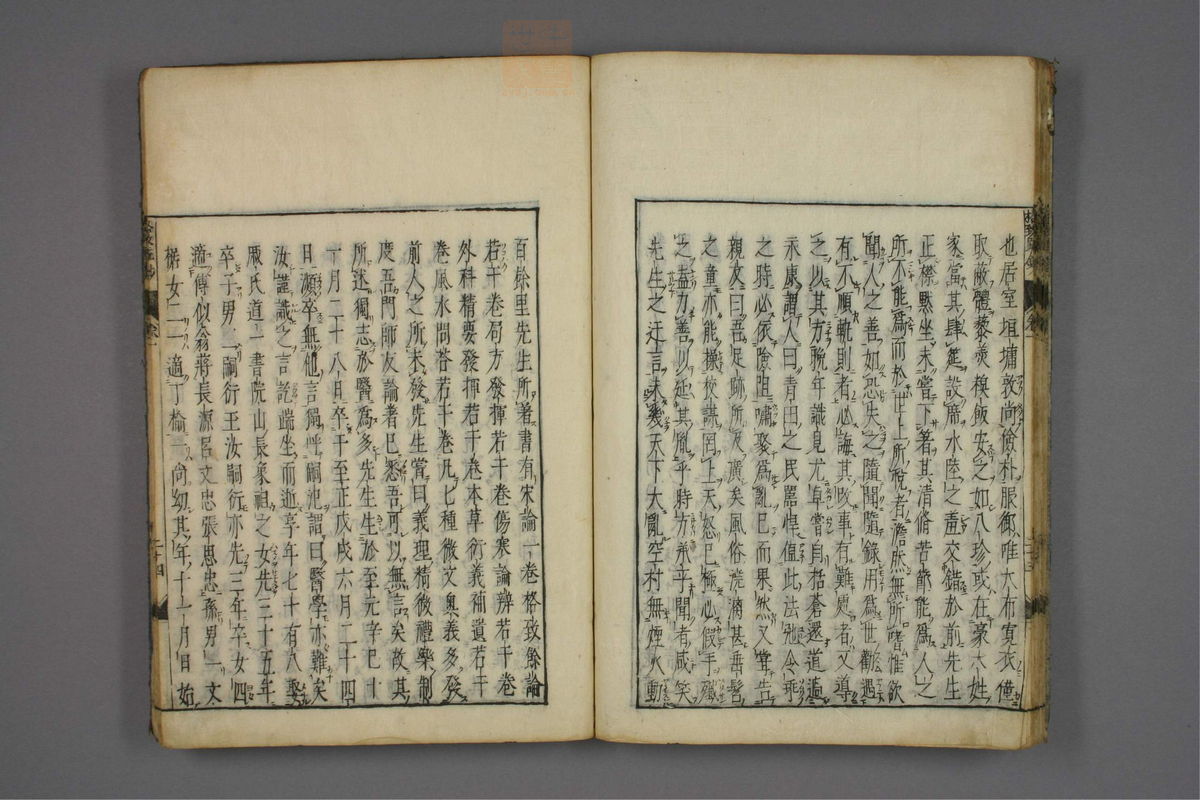 也居室垣墉敦尚儉朴服御唯大布寬衣僅
取蔽體藜羹糗飯安之如八珍或在豪大姓
家當其肆筵設席水陸之羞交錯於前先生
正襟默坐未嘗下箸其清脩苦節能爲人之
所不能爲而於世上所悅者澹然無所嗜惟欲
聞人之善如恐失之隨聞隨錄用爲世勸遇
有不順軌則者必誨其改事有難處者又導
之以其方晚年識見尤卓嘗自括蒼還道過
永康謂人曰青田之民嚚悍值此法弛令乖
之時必依險阻嘯聚爲亂已而果然又嘗告
親友曰吾足跡所及廣矣風俗澆漓甚垂髫
之童亦能操狡謀罔上天怒已極必假手殲
之盍力善以延其胤乎時方承平聞者咸笑
先生之迂言未幾天下大亂空村無煙火動
百餘里先生所著書有宋論一卷格致餘論
若干卷局方發揮若干卷傷寒論辨若干卷
外科精要發揮若干卷本草衍義補遺若干
卷風水問荅若干卷凡七種微文奧義多發
前人之所未發先生嘗曰義理精微禮樂制
度吾門師友論著已悉吾可以無言矣故其
所述獨志於醫爲多先生生於至元辛巳十
一月二十八日卒于至正戊戌六月二十四
日瀕卒無他言獨呼嗣汜謂曰醫學亦難矣
汝謹識之言訖端坐而逝享年七十有八娶
戚氏道一書院山長象祖之女先三十五年
卒子男二嗣衍玉汝嗣衍亦先三年卒女四
適傅似翁蔣長源呂文忠張思忠孫男一文
椐女二一適丁榆一尚幼其年十一月日始